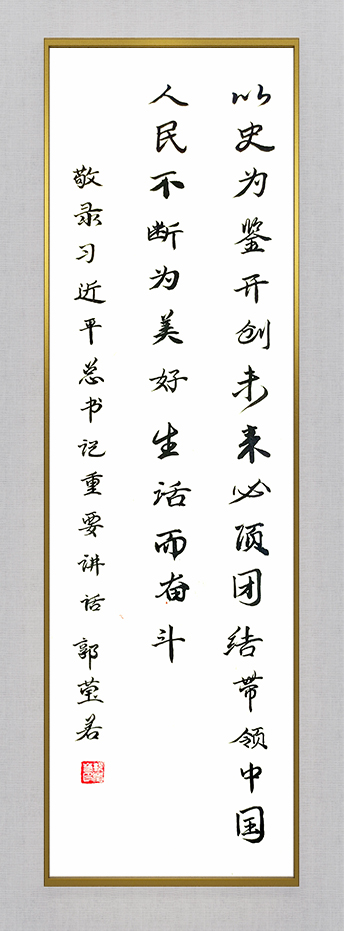 以史为鉴开创未来必须团结带领中国
人民不断为美好生活而奋斗
敬录习近平总书记重要讲话 郭蕙若